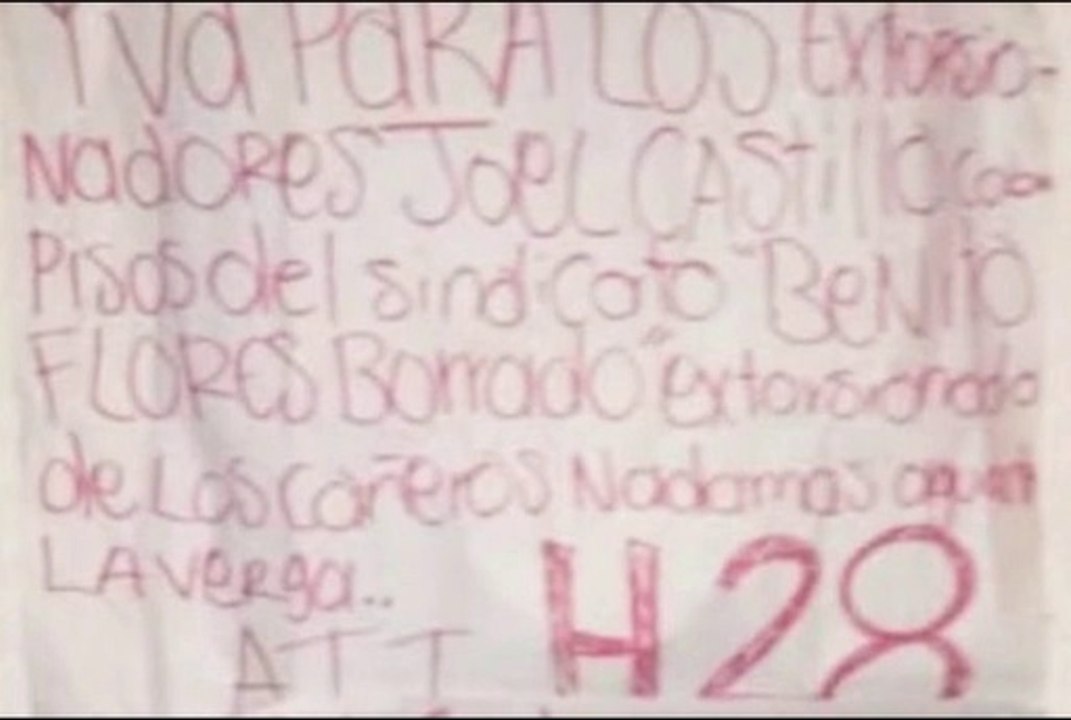 Y Va PaRA LOS Extorsio-
NadOREs JoEL CAStillo Co
PisOsdel sindicato "BeNitO
FLORES Borrado" extorsionado
de Los Cañeros Nadamas aguan
LAVERga..
ATT H28